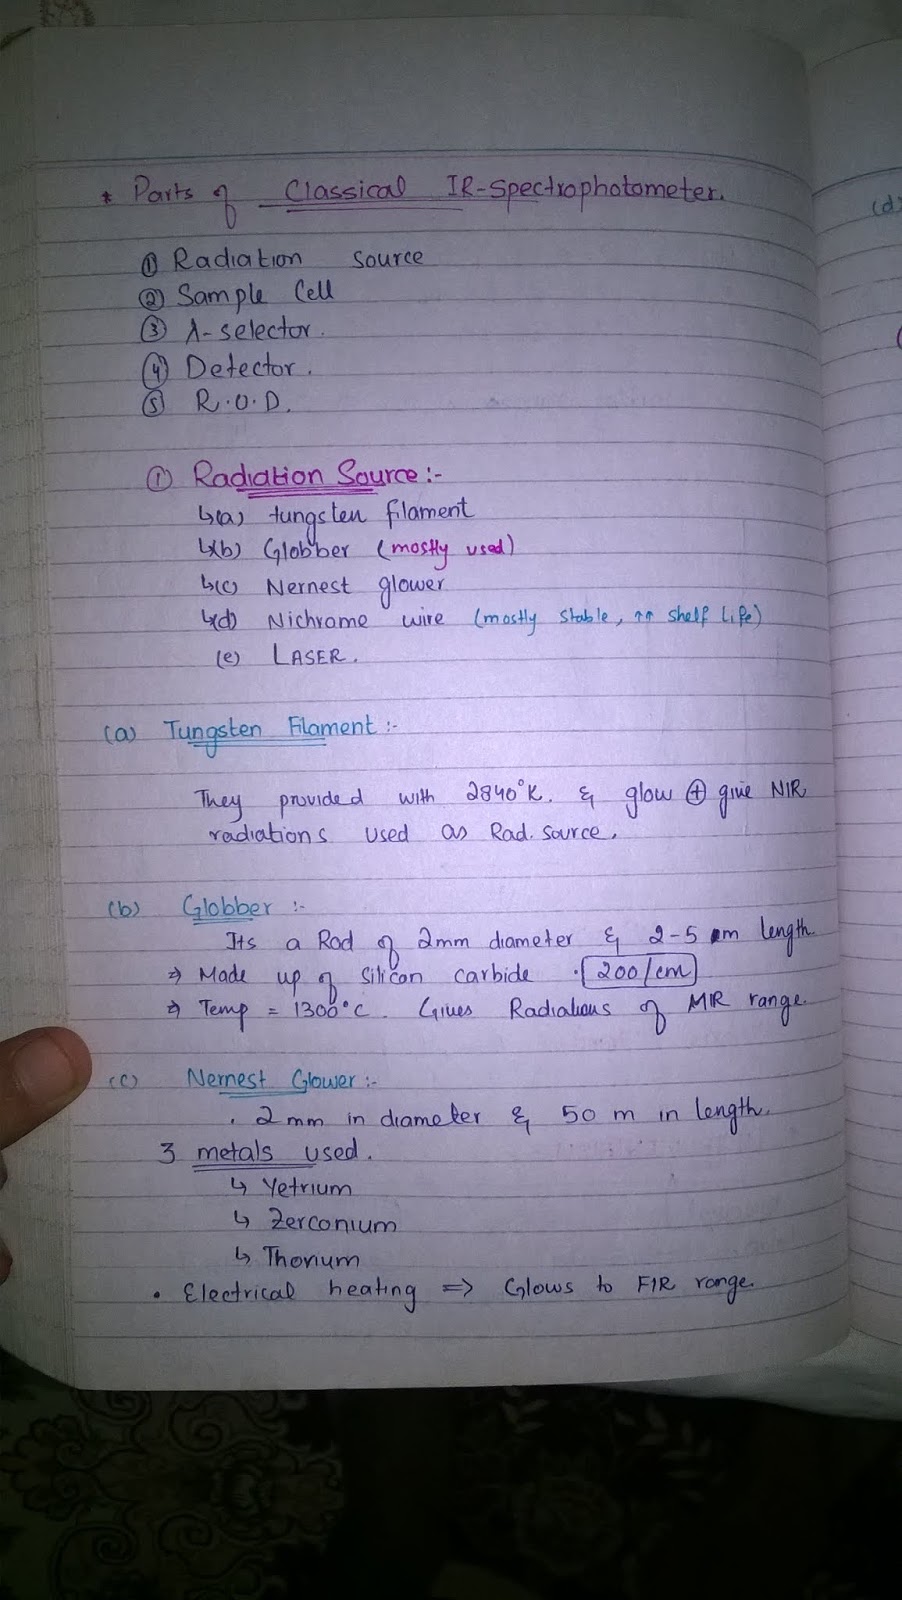 * Parts of Classical IR-Spectrophotometer.
① Radiation Source
② Sample Cell
③ λ-selector.
④ Detector.
⑤ R.O.D.
① Radiation Source :-
↳(a) tungsten filament
↳(b) Globber (mostly used)
↳(c) Nernest glower
↳(d) Nichrome wire (mostly stable, ↑↑ shelf life)
(e) LASER.
(a) Tungsten Filament :-
They provided with 2840°K. & glow ⊕ give NIR
radiations used as Rad. source.
(b) Globber :-
Its a Rod of 2mm diameter & 2-5 m length
⇒ Made up of Silicon carbide . 200/cm
⇒ Temp = 1300°C. Gives Radiations of MIR range.
(c) Nernest Glower :-
. 2mm in diameter & 50 m in length.
3 metals used.
↳ Yetrium
↳ Zerconium
↳ Thorium
• Electrical heating => Glows to FIR range.
(d)